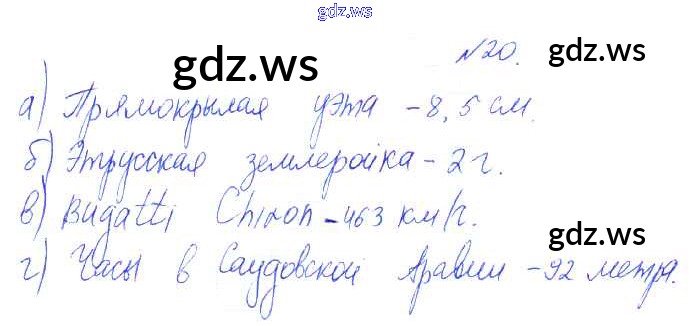 gdz.ws
№20. gdz.ws
gdz.ws
а) Прямокрылая уэта - 8,5 см.
б) Этрусская землеройка - 2 г.
в) Bugatti Chiron - 463 км/г.
gdz.ws
г) Часы в Саудовской Аравии - 92 метра.
gdz.ws